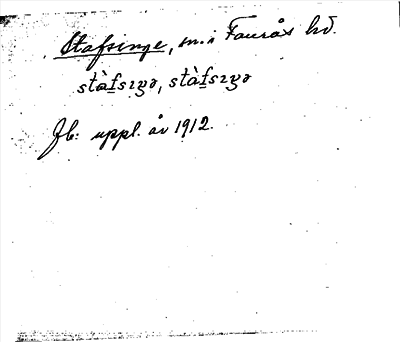 Stafsinge, sn. i Faurås hd.
stàfsıŋə, stàfsıŋə
Jb: uppl. år 1912.